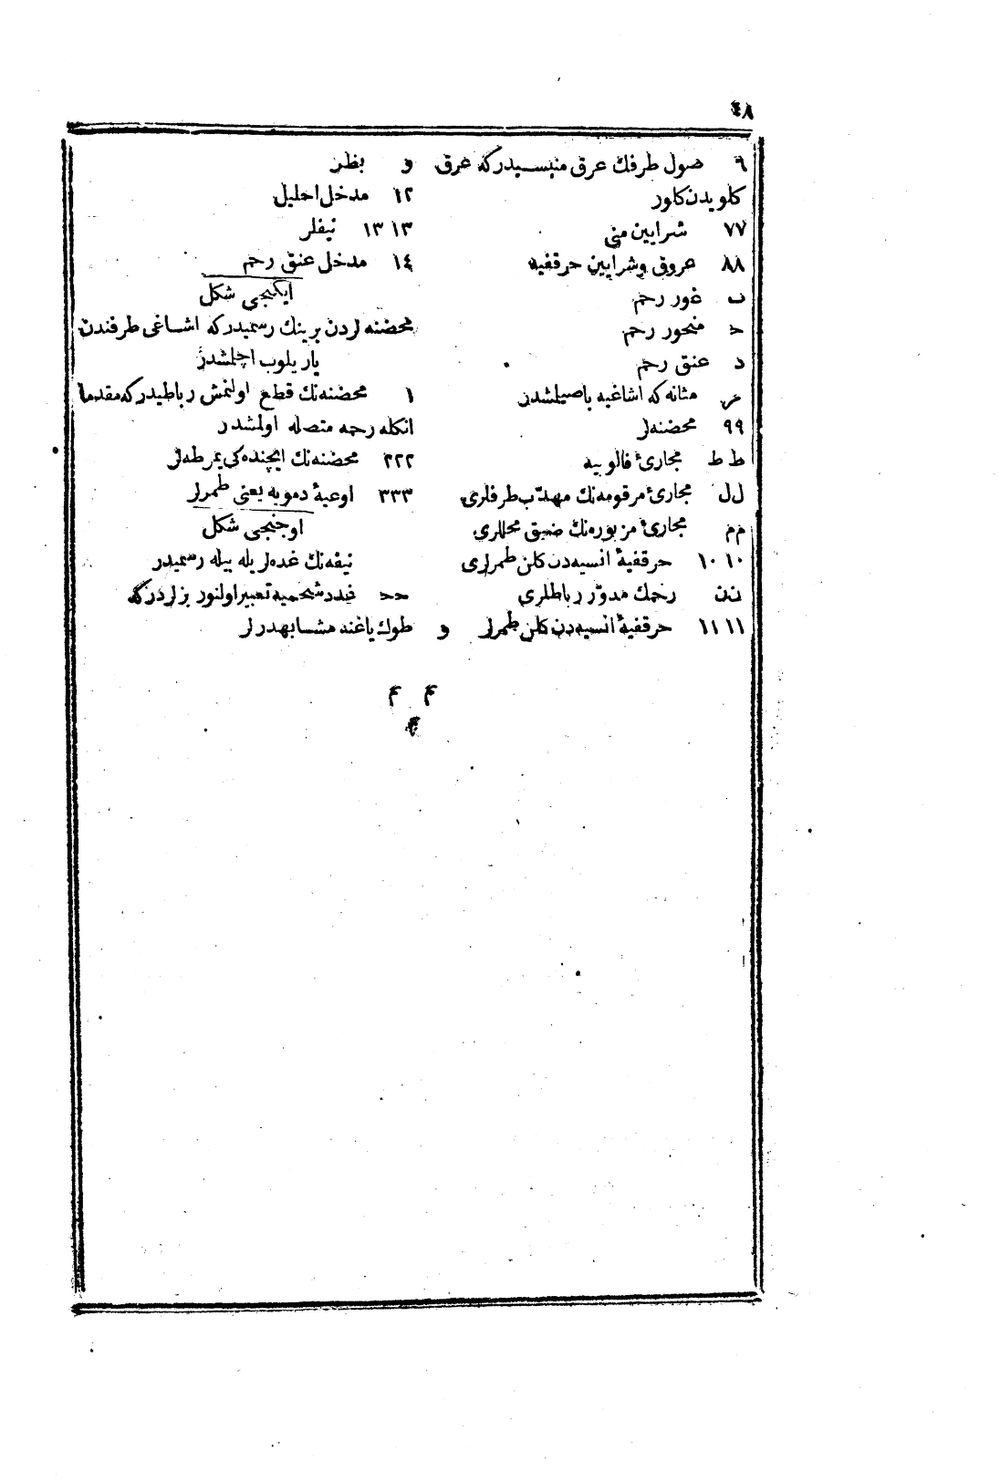 ٤٨
٩ صول طرفك عرق منيسيدركه عرق
كلويدن كلور
٧٧ شرايين منى
٨٨ عروق وشرايين حرقفيه
ب غور رحم
ح منحور رحم
د عنق رحم
مثانه كه اشاغيه باصيلشدن
٩٩ محضنه لر
ط ط مجارئ فالوپيه
ل ل مجارئ مرقومه نك مهدّب طرفلرى
م م مجارئ مزبوره نك ضيق محللرى
١٠ ١٠ حرقفيهٔ انسيه دن كلن طمرلرى
ن ن رحمك مدوّر رباطلرى
١١ ١١ حرقفيهٔ انسيه دن كلن طمرلر
و بظر
١٢ مدخل احليل
١٣ ١٣ نيفلر
١٤ مدخل عنق رحم
ايكنجى شكل
محضنه لردن برينك رسميدركه اشاغى طرفندن
ياريلوب اچلشدر
١ محضنه نك قطع اولنمش رباطيدركه مقدما
انكله رحمه متصله اولمشدر
٢٢٢ محضنه نك ايچنده كى يمرطه لر
٣٣٣ اوعيهٔ دمويه يعنى طمرلر
اوجنجى شكل
نيفه نك غده لريله بيله رسميدر
حح غدد شحميه تعبير اولنور بزلردركه
و طوك ياغنه مشابهدرلر
م م
م